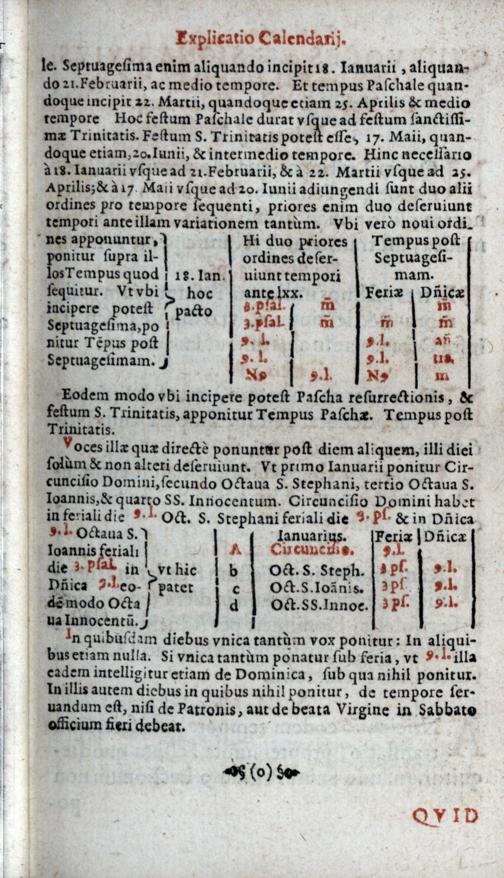 Explicatio Calendarij.
le. Septuagesima enim aliquando incipit 18. Ianuarii, aliquan-
do 21. Februarii, ac medio tempore. Et tempus Paschale quan-
doque incipit 22. Martii, quandoque etiam 25. Aprilis & medio
tempore Hoc festum Paschale durat vsque ad festum sanctissi-
mæ Trinitatis. Festum S. Trinitatis potest esse, 17. Maii, quan-
doque etiam, 20. Iunii, & intermedio tempore. Hinc necessario
à 18. Ianuarii vsque ad 21. Februarii, & à 22. Martii vsque ad 25.
Aprilis; & à 17. Maii vsque ad 20. Iunii adiungendi sunt duo alii
ordines pro tempore sequenti, priores enim duo deseruiunt
tempori ante illam variationem tantùm. Vbi verò noui ordi-
nes apponuntur,
ponitur supra il-
los Tempus quod
sequitur. Vt vbi
incipere potest
Septuagesima, po
nitur Tẽpus post
Septuagesimam.
18. Ian.
hoc
pacto
Hi duo priores
ordines deser-
uiunt tempori
ante lxx.
Tempus post
Septuagesi-
mam.
Feriæ Dñicæ
3. psal. m̃ m̃
3. psal. m̃ m̃ m̃
9. l. 9. l. añ
9. l. 9. l.
N9 9. l. N9 m
Eodem modo vbi incipere potest Pascha resurrectionis, &
festum S. Trinitatis, apponitur Tempus Paschæ. Tempus post
Trinitatis.
Voces illæ quæ directè ponuntur post diem aliquem, illi diei
solùm & non alteri deseruiunt. Vt primo Ianuarii ponitur Cir-
cuncisio Domini, secundo Octaua S. Stephani, tertio Octaua S.
Ioannis, & quarto SS. Innocentum. Circuncisio Domini habet
in feriali die 9. l. Oct. S. Stephani feriali die 3. ps. & in Dñica
9. l. Octaua S.
Ioannis feriali
die 3. psal in
Dñica 9. l. eo-
dẽ modo Octa
ua Innocentũ.
vt hic
patet
Ianuarius. Feriæ Dñicæ
A Circuncisio. 9. l.
b Oct. S. Steph. 3 ps. 9. l.
c Oct. S. Ioãnis. 3 ps 9. l.
d Oct. SS. Innoc. 3 ps. 9. l.
In quibusdam diebus vnica tantùm vox ponitur: In aliqui-
bus etiam nulla. Si vnica tantùm ponatur sub feria, vt 9. l. illa
eadem intelligitur etiam de Dominica, sub qua nihil ponitur.
In illis autem diebus in quibus nihil ponitur, de tempore ser-
uandum est, nisi de Patronis, aut de beata Virgine in Sabbato
officium fieri debeat.
(0)
QVID